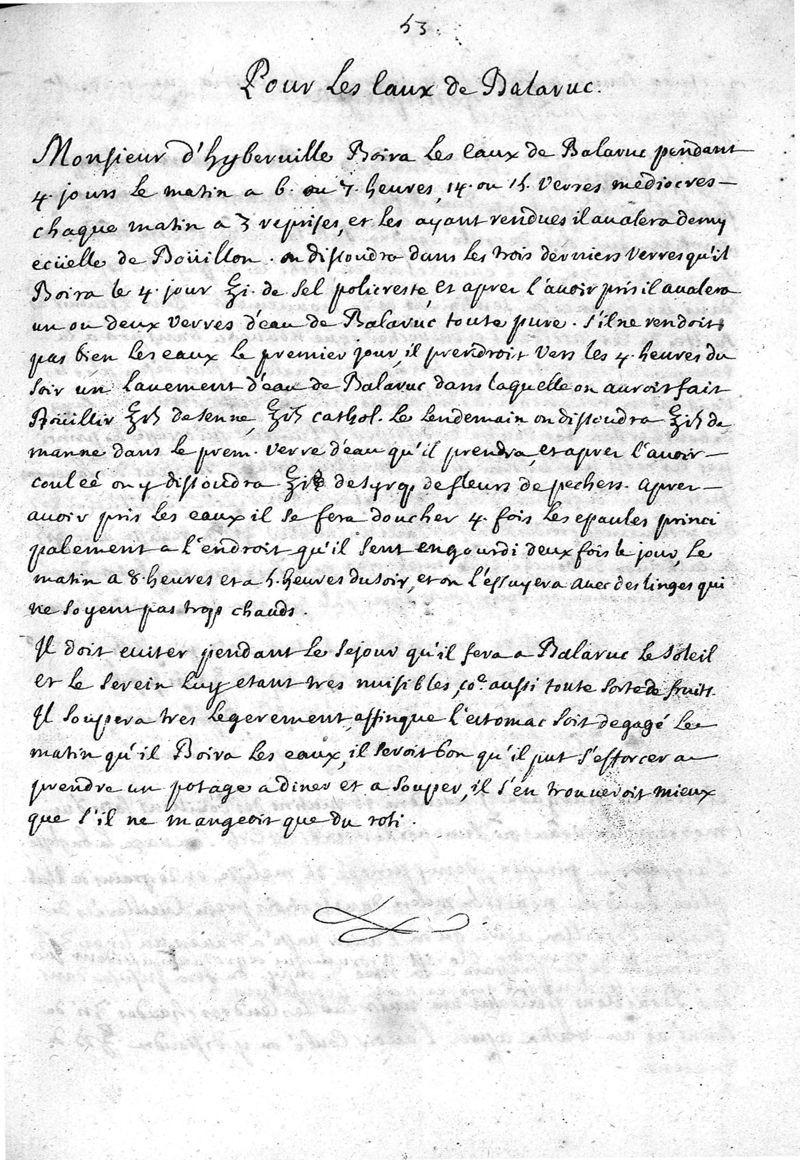 53.
Pour Les Eaux de Balaruc.
Monsieur d'hyberville Boira Les Eaux de Balaruc pendant
4. jours Le matin a 6. ou 7. heures, 14. ou 15. verres mediocres
chaque matin a 3 reprises, et les ayant rendues il aualera demy
ecüelle de Boüillon. on dissoudra dans les trois derniers verres qu'il
Boira le 4. jour ʒi. de sel policreste, et aprer l'auoir pris il aualera
un ou deux verres d'eau de Balaruc toute pure. S'il ne rendoit
pas bien Les eaux Le premier jour, il prendroit vers les 4. heures du
soir un Lauement d'eau de Balaruc dans laquelle on auroit fait
Boüillir de senne, cathol. Le Lendemain on dissoudra de
manne dans le prem. verre d'eau qu'il prendra, et aprer l'auoir
couleé on y dissoudra de syrop de fleurs de pechers. aprer
auoir pris Les eaux il se fera doucher 4. fois Les epaules princi
palement a L'endroit qu'il sent engourdi deux fois le jour, Le
matin a 8 heures et a 5. heures du soir, et on l'essuyera auec des linges qui
ne soyent pas trop chauds.
Il doit euiter pendant Le sejour qu'il fera a Balaruc Le soleil
et Le serein Luy etant tres nuisibles, coe. aussi toute sorte de fruits.
Il soupera tres Legerement, affinque L'estomac soit degagé Le
matin qu'il Boira Les eaux, il seroit bon qu'il put s'efforcer a
prendre un potage a diner et a souper, il s'en trouueroit mieux
que s'il ne mangeoit que du roti.